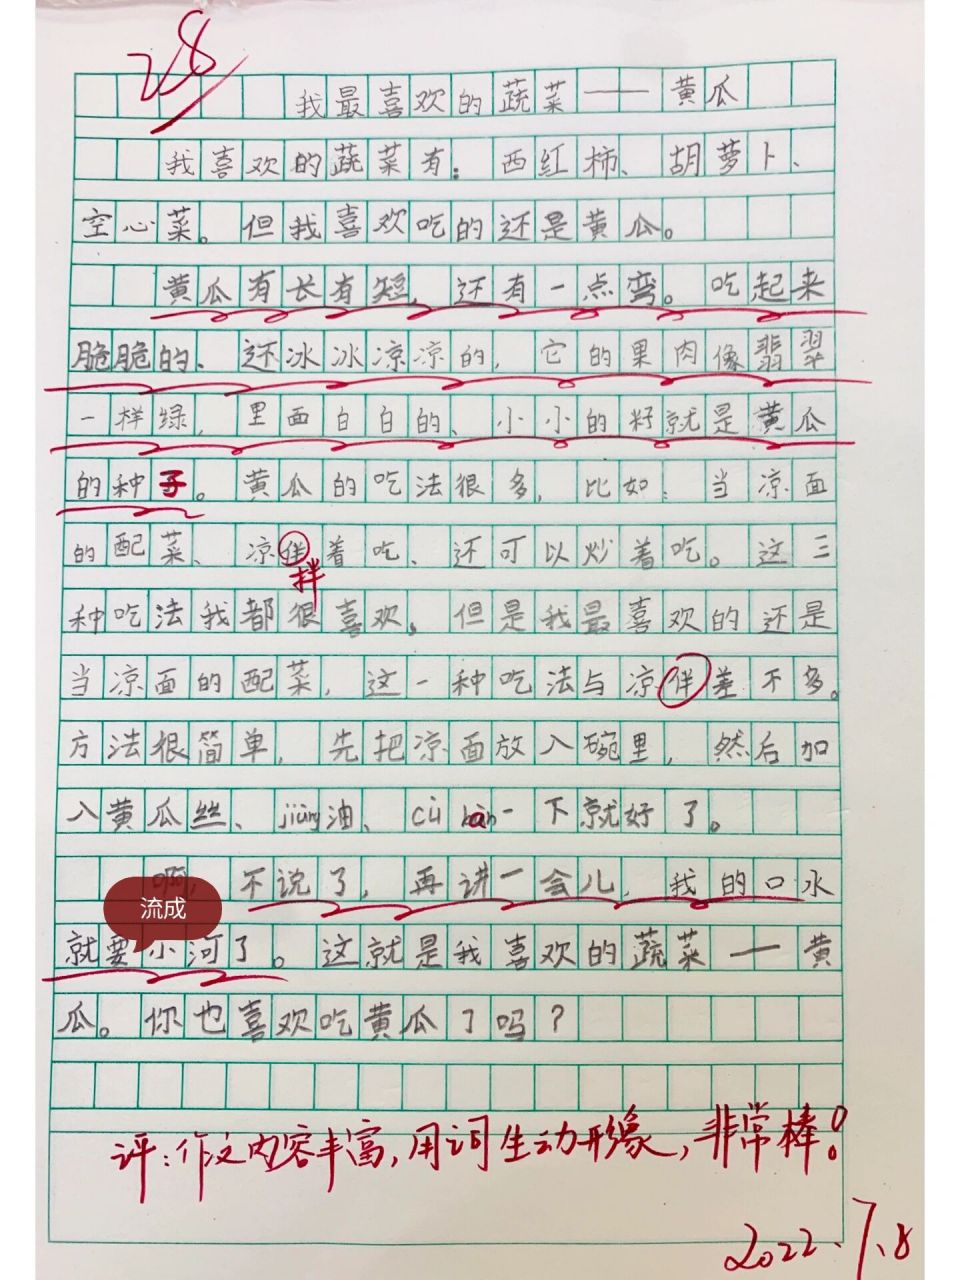 28
我最喜欢的蔬菜——黄瓜
我喜欢的蔬菜有：西红柿、胡萝卜、
空心菜。但我喜欢吃的还是黄瓜。
黄瓜有长有短，还有一点弯。吃起来
脆脆的、还冰冰凉凉的，它的果肉像翡翠
一样绿，里面白白的、小小的籽就是黄瓜
的种子。黄瓜的吃法很多，比如：当凉面
的配菜、凉伴着吃、还可以炒着吃。这三
拌
种吃法我都很喜欢，但是我最喜欢的还是
当凉面的配菜，这一种吃法与凉伴差不多。
方法很简单，先把凉面放入碗里，然后加
入黄瓜丝、jiàng油、cù bàn一下就好了。
啊，不说了，再讲一会儿，我的口水
流成
就要小河了。这就是我喜欢的蔬菜——黄
瓜。你也喜欢吃黄瓜了吗？
评：作文内容丰富，用词生动形象，非常棒！
2022.7.8